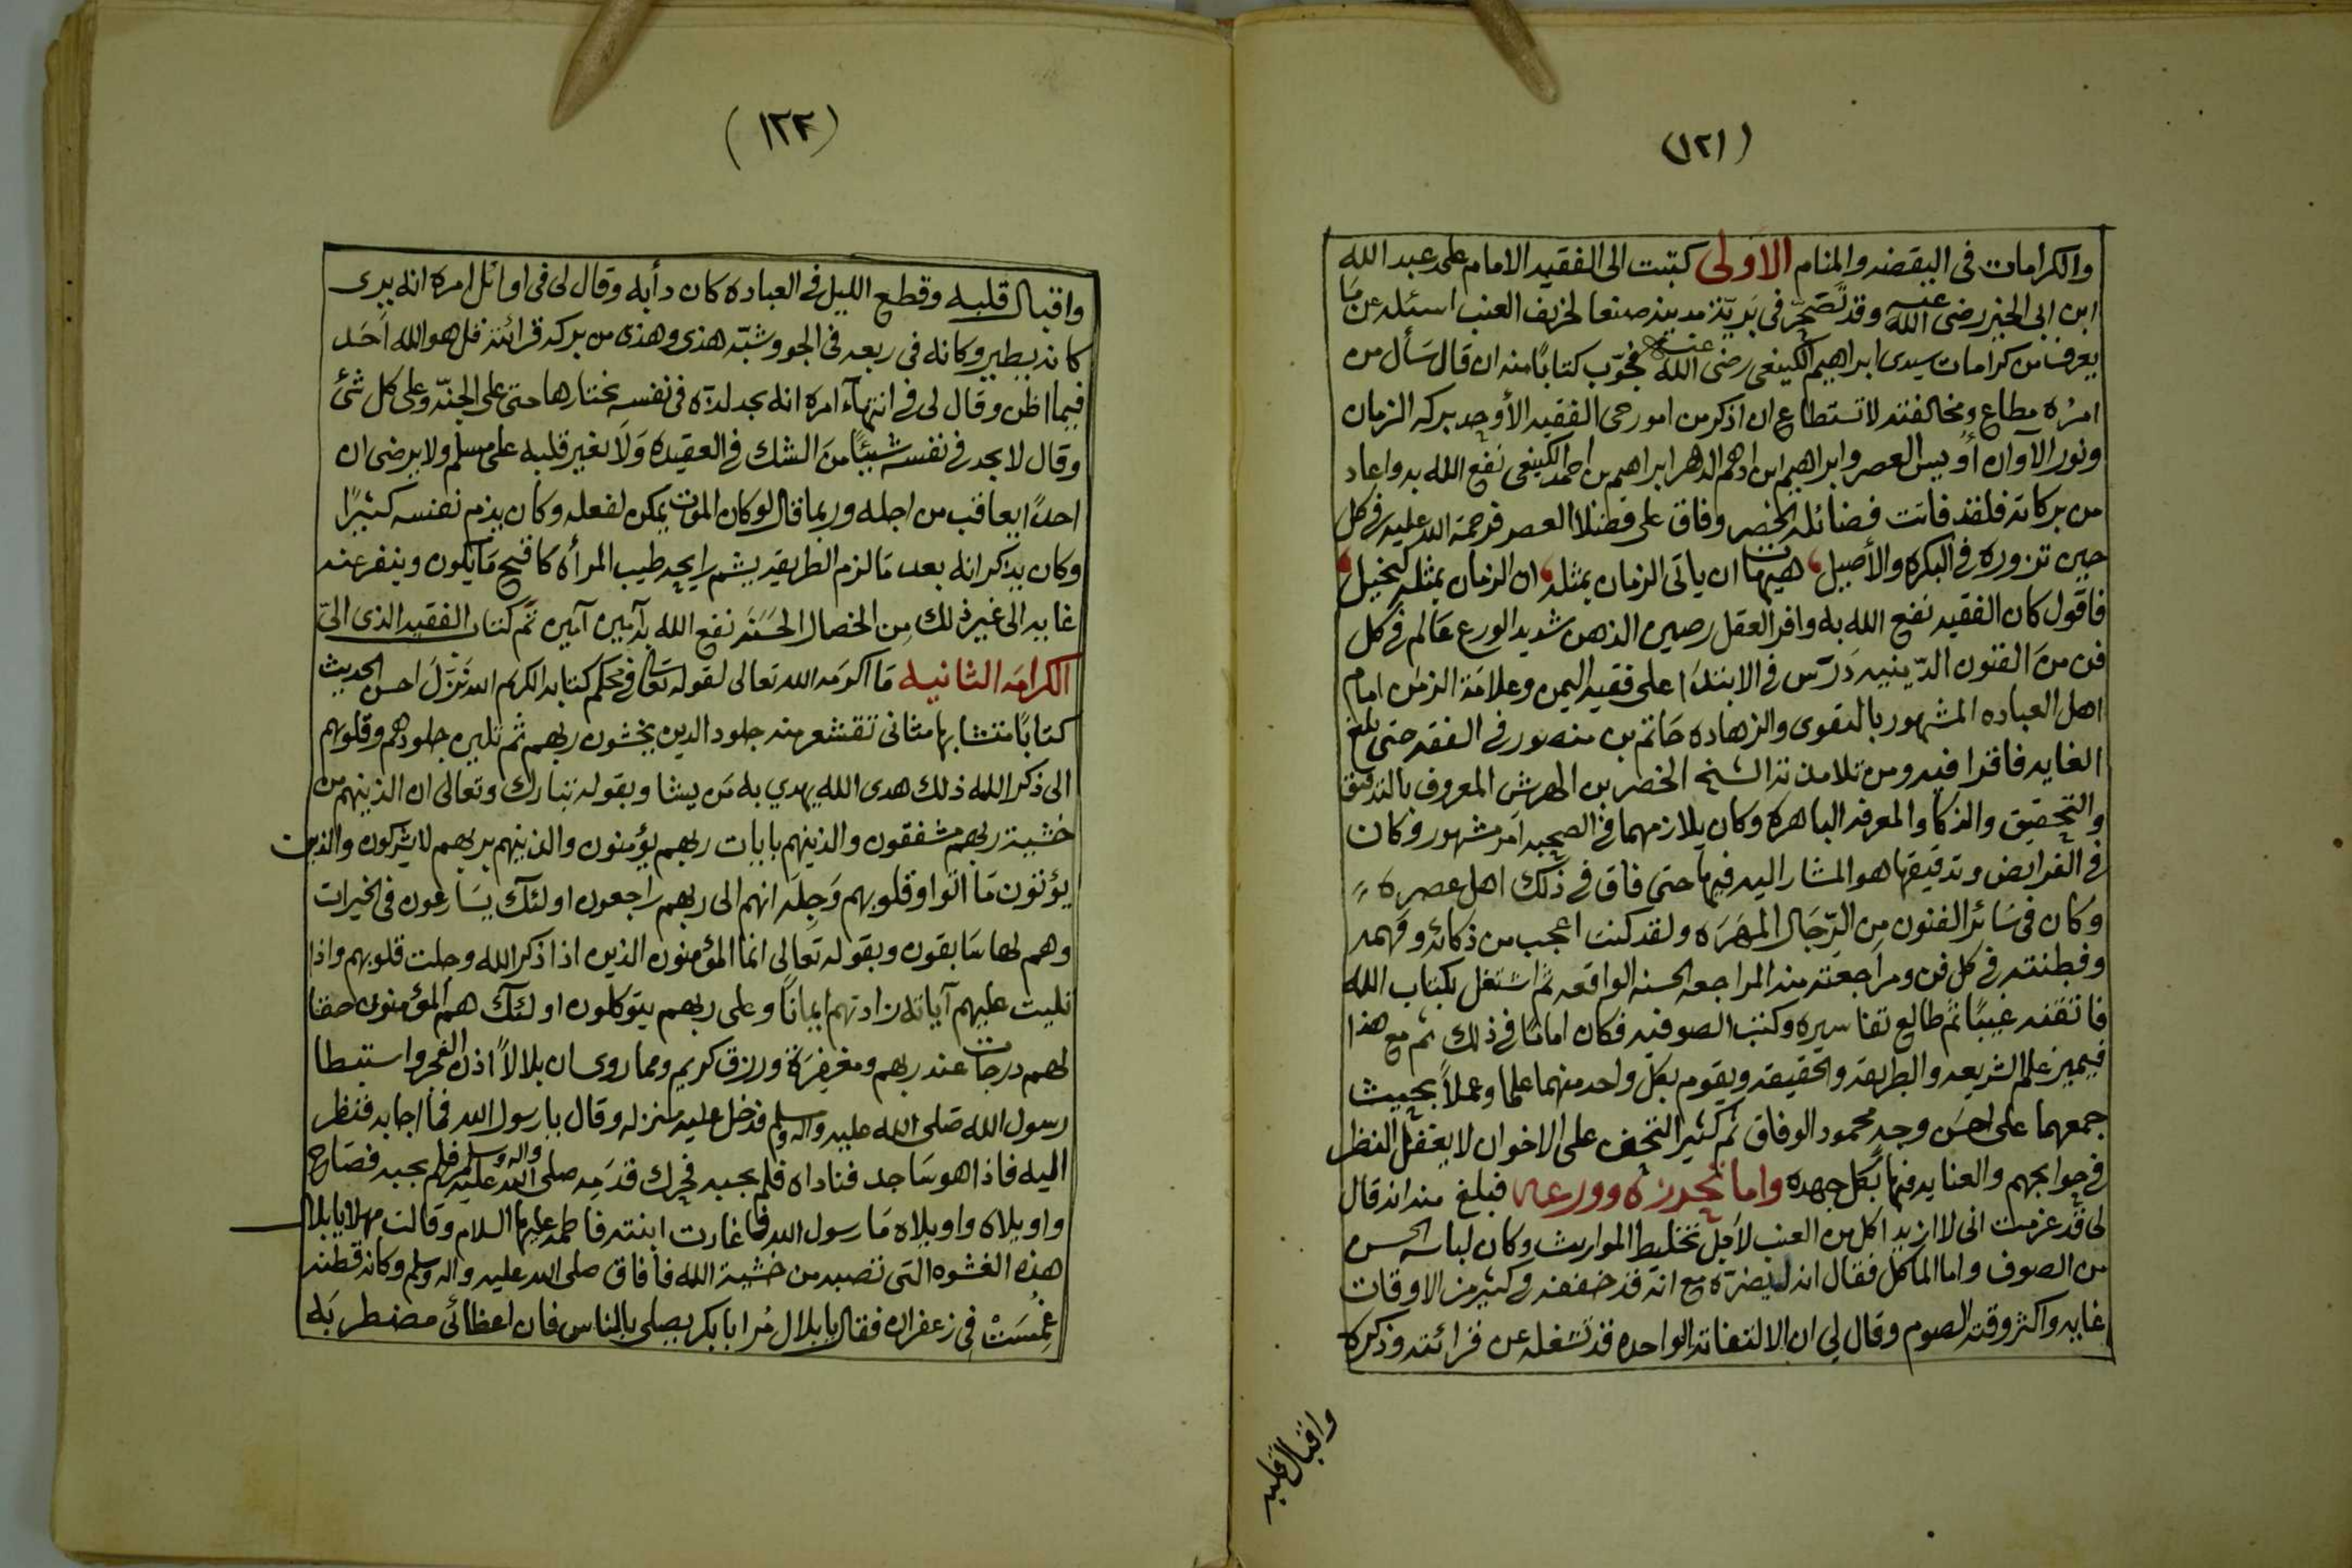 (١٢١)
والكرامات فى اليقضه والمنام الاولى كتبت الى الفقيه الامام على عبد الله
ابن ابى الخير رضى الله عنه وقد تضجر فى برية مدينة صنعا لخريف العنب اسئله عن ما
يعرف من كرامات سيدى ابراهيم الكينعى رضى الله عنه فجوّب كتابًا منه ان قال سأل من
امرُه مطاع ومخالفته لا تستطاع ان اذكر من امور حى الفقيه الأوحد بركه الزمان
ونور الآوان أويس العصر وابراهيم ابن ادهم الدهر ابراهيم بن احمد الكينعى نفع الله به واعاد
من بركاته فلقد فاتت فضائله الحصر وفاق على فضلا العصر فرحمة الله عليه فى كل
حين تزوره فى البكره والأصيل هيهات ان ياتى الزمان بمثله ان الزمان بمثله لبخيل
فاقول كان الفقيه نفع الله به وافر العقل رصين الذهن شديد الورع عالم فى كل
فن من الفنون الدّينيه دَرّس فى الابتدا على فقيه اليمن وعلامة الزمن امام
اهل العباده المشهور بالتقوى والزهاده حَاتم بن منصور فى الفقه حتى بلغ
الغايه فاقرا فيه ومن تلامذته الشيخ الخضر بن الهرش المعروف بالتدقيق
والتحقيق والذكا والمعرفه الباهره وكان يلازمهما فى الصحبه آمر مشهور وكان
فى الفرايض وتدقيقها هو المشار اليه فيها حتى فاق فى ذلك اهل عصره
وكان فى سائر الفنون مِن الرّجَال المهَرَه ولقد كنت اعجب من ذكائه وفهمه
وفطنته فى كل فن ومراجعته منه المراجعه الحسنه الواقعه ثم اشتغل بكتاب الله
فاتقنه غيبًا ثم طالع تفاسيره وكتب الصوفيه فكان امامًا فى ذلك ثم مع هذا
فيميز علم الشريعه والطريقه والحقيقه ويقوم بكل واحد منهما علما وعملاً بحيث
جمعهما على احسَن وجهٍ محمود الوفاق ثم كثير التحف على الاخوان لا يغفل النظر
فى حوايجهم والعنايه فيها بكل جهده واما تحرزه وورعه فبلغ منه انه قال
لى قد عزمت انى لا ازيد اكل من العنب لاجل تخليط المواريث وكان لباسه الحسن
من الصوف واما الماكل فقال انه ليضرّه مع انه قد خففه فى كثير من الاوقات
غايه واكثر وقته الصوم وقال لى ان الالتفاته الواحده قد تشغله عن قرائته وذكره
واقبال قلبه
(١٢٢)
واقبال قلبه وقطع الليل فى العباده كان دأبه وقال لى فى اوائل امره انه يرى
كانه يطير وكانه فى ربعه فى الجو وشبّه هذى وهذى من بركه قرائته قل هو الله أحَد
فيما اظن وقال لى فى انتهآء امره انه يجد لذه فى نفسه يختارها حتى على الجنّه وعلى كل شئ
وقال لا يجد فى نفسه شيئًا من الشك فى العقيده وَلَا تغير قلبه على مسلم ولا يرضى ان
احدًا يعاقب من اجله وربما قال لو كان الموت يمكن لفعله وكان يذم نفسه كثيرًا
وكان يذكر انه بعد مَا لزم الطريقه يشم رايحه طيب المرأه كاقبح مَا يكون وينفر عنه
غايه الى غير ذلك مِن الخصال الحَسَنه نفع الله به آمين آمين تم كتاب الفقيه الذى الىّ
الكرامَه الثانيه مَا اكرمه الله تعالى لقوله تعالى فى محكم كتابه الكريم الله نَزّل احسن الحديث
كتابًا متشابها مثانى تقشعر منه جلود الذين يخشون ربهم ثم تلين جلودهم وقلوبهم
الى ذكر الله ذلك هدى الله يهدي به مَن يشا وبقوله تبارك وتعالى ان الذين هم من
خشية ربهم مشفقون والذين هم بايات ربهم يؤمنون والذين هم بربهم لا يشركون والذين
يؤتون مَا آتوا وقلوبهم وَجِله انهم الى ربهم راجعون اولئك يسَارعون فى الخيرات
وهم لها سَابقون وبقوله تعالى انما المؤمنون الذين اذا ذكر الله وجلت قلوبهم واذا
تليت عليهم آياته زادتهم ايمانًا وعلى ربهم يتوكلون اولئك هم المؤمنون حقا
لهم درجات عند ربهم ومغفِرَة ورزق كريم ومما روى ان بلالاً اذن الفجر واستبطا
رسول الله صَلى الله عليه واله وسلم فدخل عليه منزله وقال يا رسول الله فما اجابه فنظر
اليه فاذا هو سَاجد فناداه فلم يجبه فحرك قدَمِه صلى الله عليه واله وسلم فلم يجبه فصَاح
واويلاه واويلاه مَا رسول الله فاغارت ابنته فاطمه عليها السلام وقالت مهلا يا بلال
هذه الغشوه التى تصيبه من خشية الله فافاق صلى الله عليه واله وسلم وكانه قطنه
غمِسَتْ فى زعفران فقال يا بلال مُر ابا بكر يصلى بالناس فان اعظائى مضطربَه